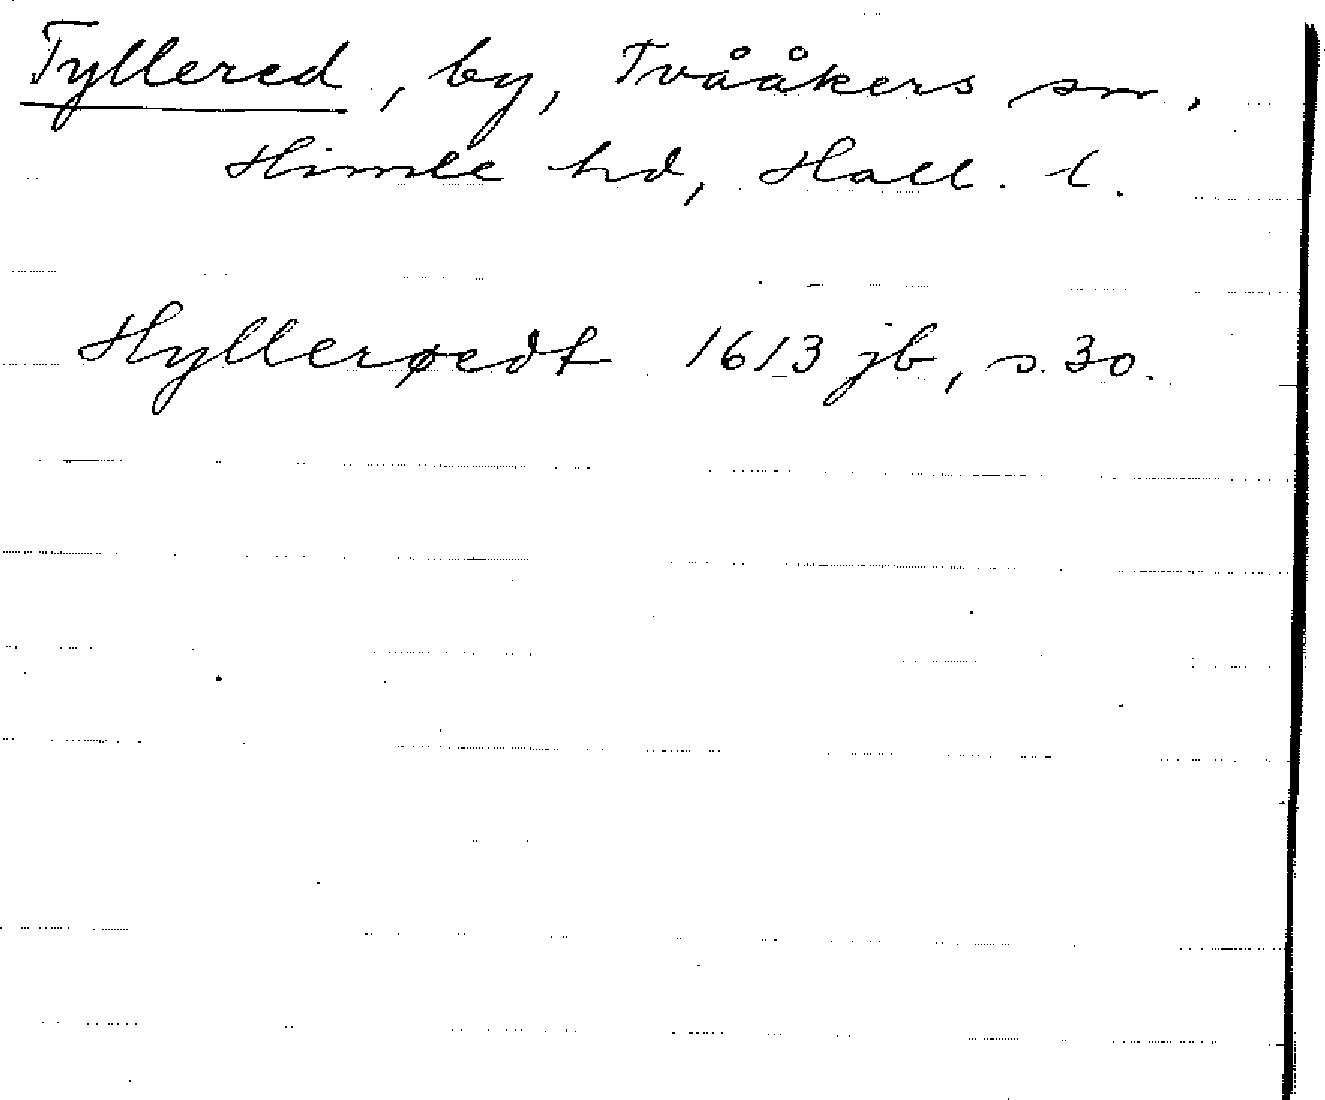 Tyllered, by, Tvååkers sn.
Himle hd, Hall. l.
Hyllerøedt 1613 jb, s. 30.